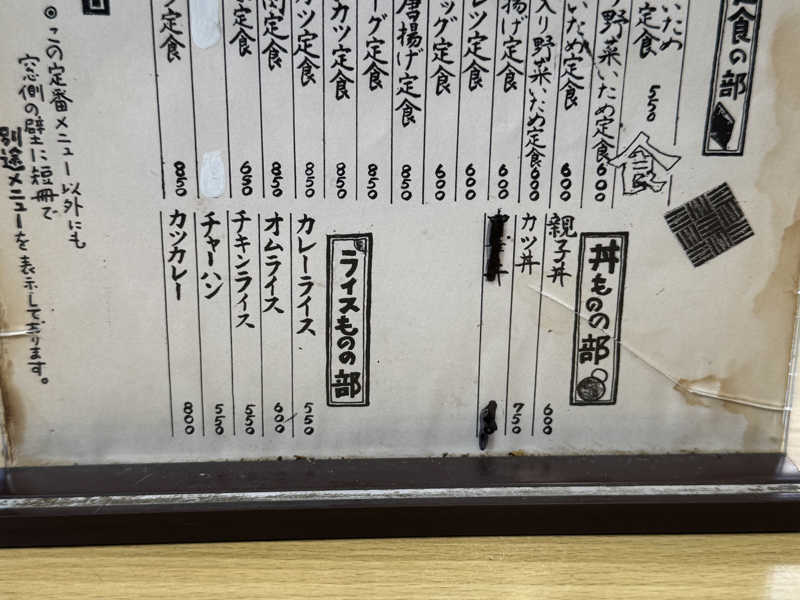 定食の部
いため
定食 550
野菜いため定食 600
いため定食 600
入り野菜いため定食 600
揚げ定食 600
レツ定食 600
ッグ定食 600
唐揚げ定食 850
ーグ定食 850
カツ定食 850
カツ定食 850
肉定食 850
定食 650
ツ定食 850
丼ものの部
親子丼 600
カツ丼 750
丼
ライスものの部
カレーライス 550
オムライス 600
チキンライス 550
チャーハン 550
カツカレー 800
◎この定番メニュー以外にも
窓側の壁に短冊で
別途メニューを表示して有ります。